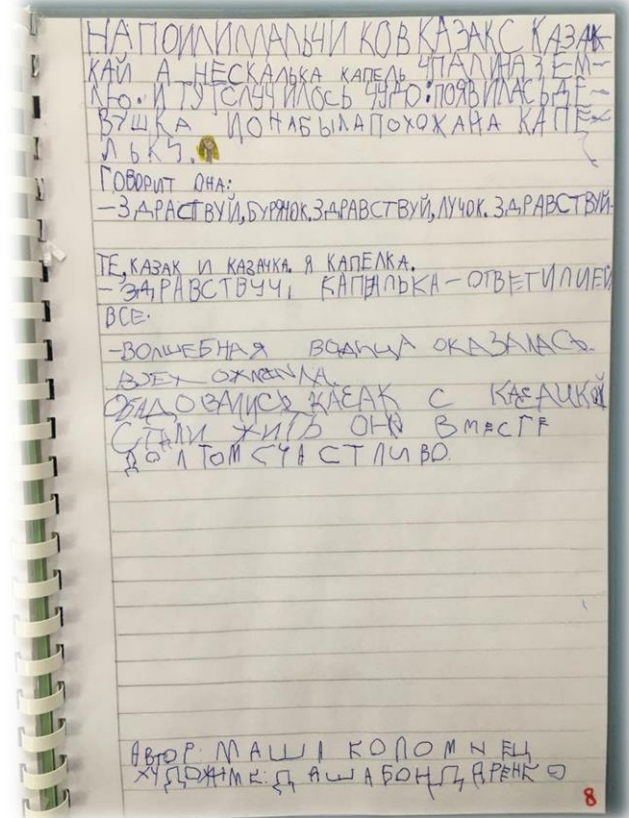 НАПОИЛИ МАЛЬЧИКОВ КАЗАК С КАЗАЧ-
КАЙ А НЕСКАЛЬКА КАПЕЛЬ УПАЛИ НА ЗЕМ-
ЛЮ. И ТУТ СЛУЧИЛОСЬ ЧУДО: ПОЯВИЛАСЬ ДЕ-
ВУШКА И ОНА БЫЛА ПОХОЖА НА КАПЕ-
ЛЬКУ.
ГОВОРИТ ОНА:
-ЗДРАСТВУЙ, БУРЯНОК. ЗДРАВСТВУЙ, ЛУЧОК. ЗДРАВСТВУЙ-
ТЕ, КАЗАК И КАЗАЧКА. Я КАПЕЛКА.
- ЗДРАВСТВУЧ, КАПАЛЬКА - ОТВЕТИЛИ ЕЙ
ВСЕ.
-ВОЛШЕБНАЯ ВОДИЦА ОКАЗАЛАСЬ.
ВСЕХ ОЖИВИЛА.
ОБАДОВАЛИСЬ КАЗАК С КАЗАЧКОЙ
СТАЛИ ЖИТЬ ОНИ ВМЕСТЕ
ДОЛГО И СЧАСТЛИВО.
АВТОР: МАША КОЛОМИЕЦ
ХУДОЖНИК: ДАША БОНДАРЕНКО
8